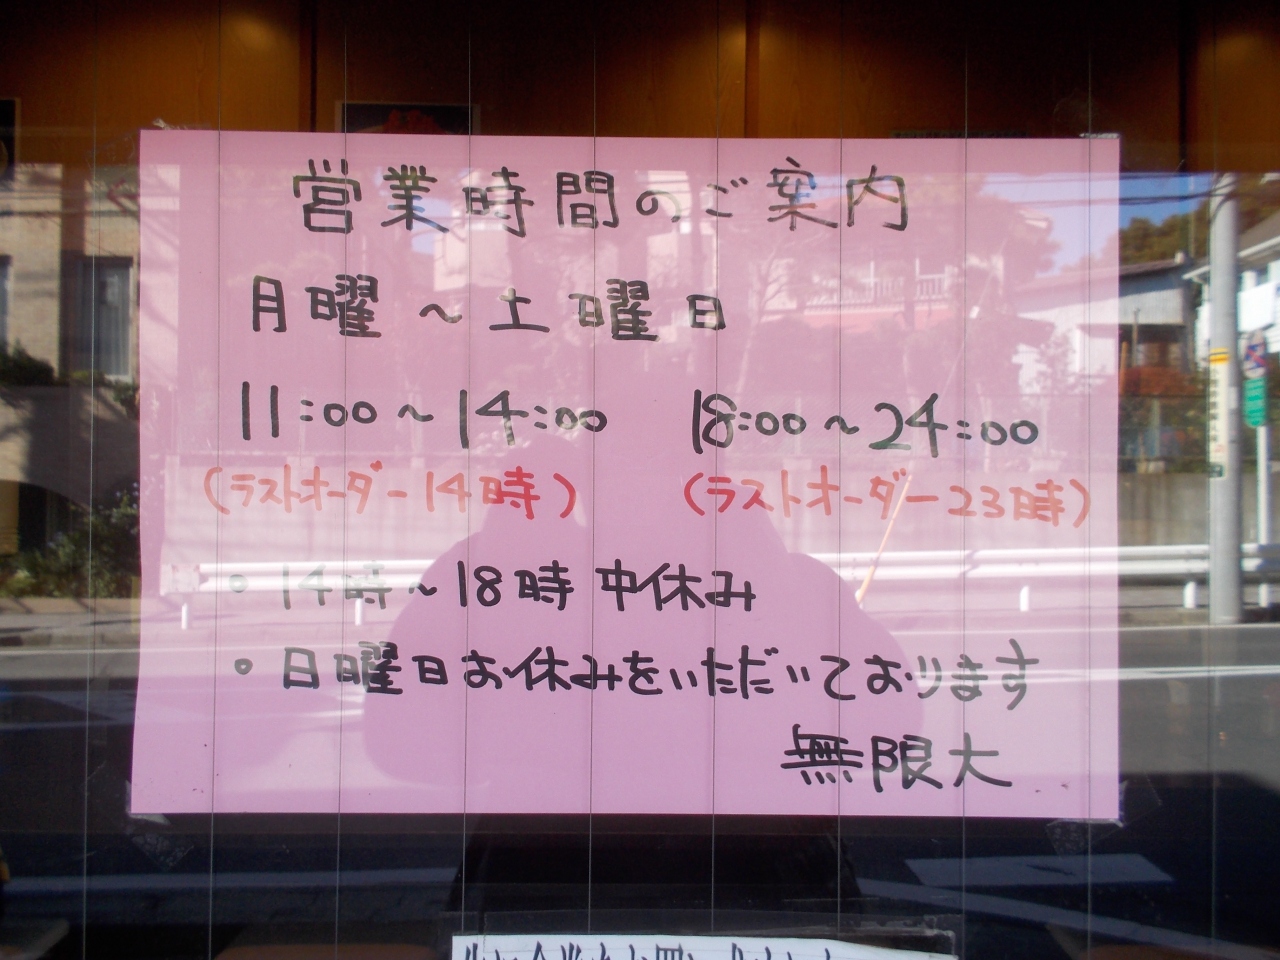 営業時間のご案内
月曜～土曜日
11:00～14:00 18:00～24:00
(ラストオーダー14時) (ラストオーダー23時)
・14時～18時中休み
・日曜日お休みをいただいております
無限大